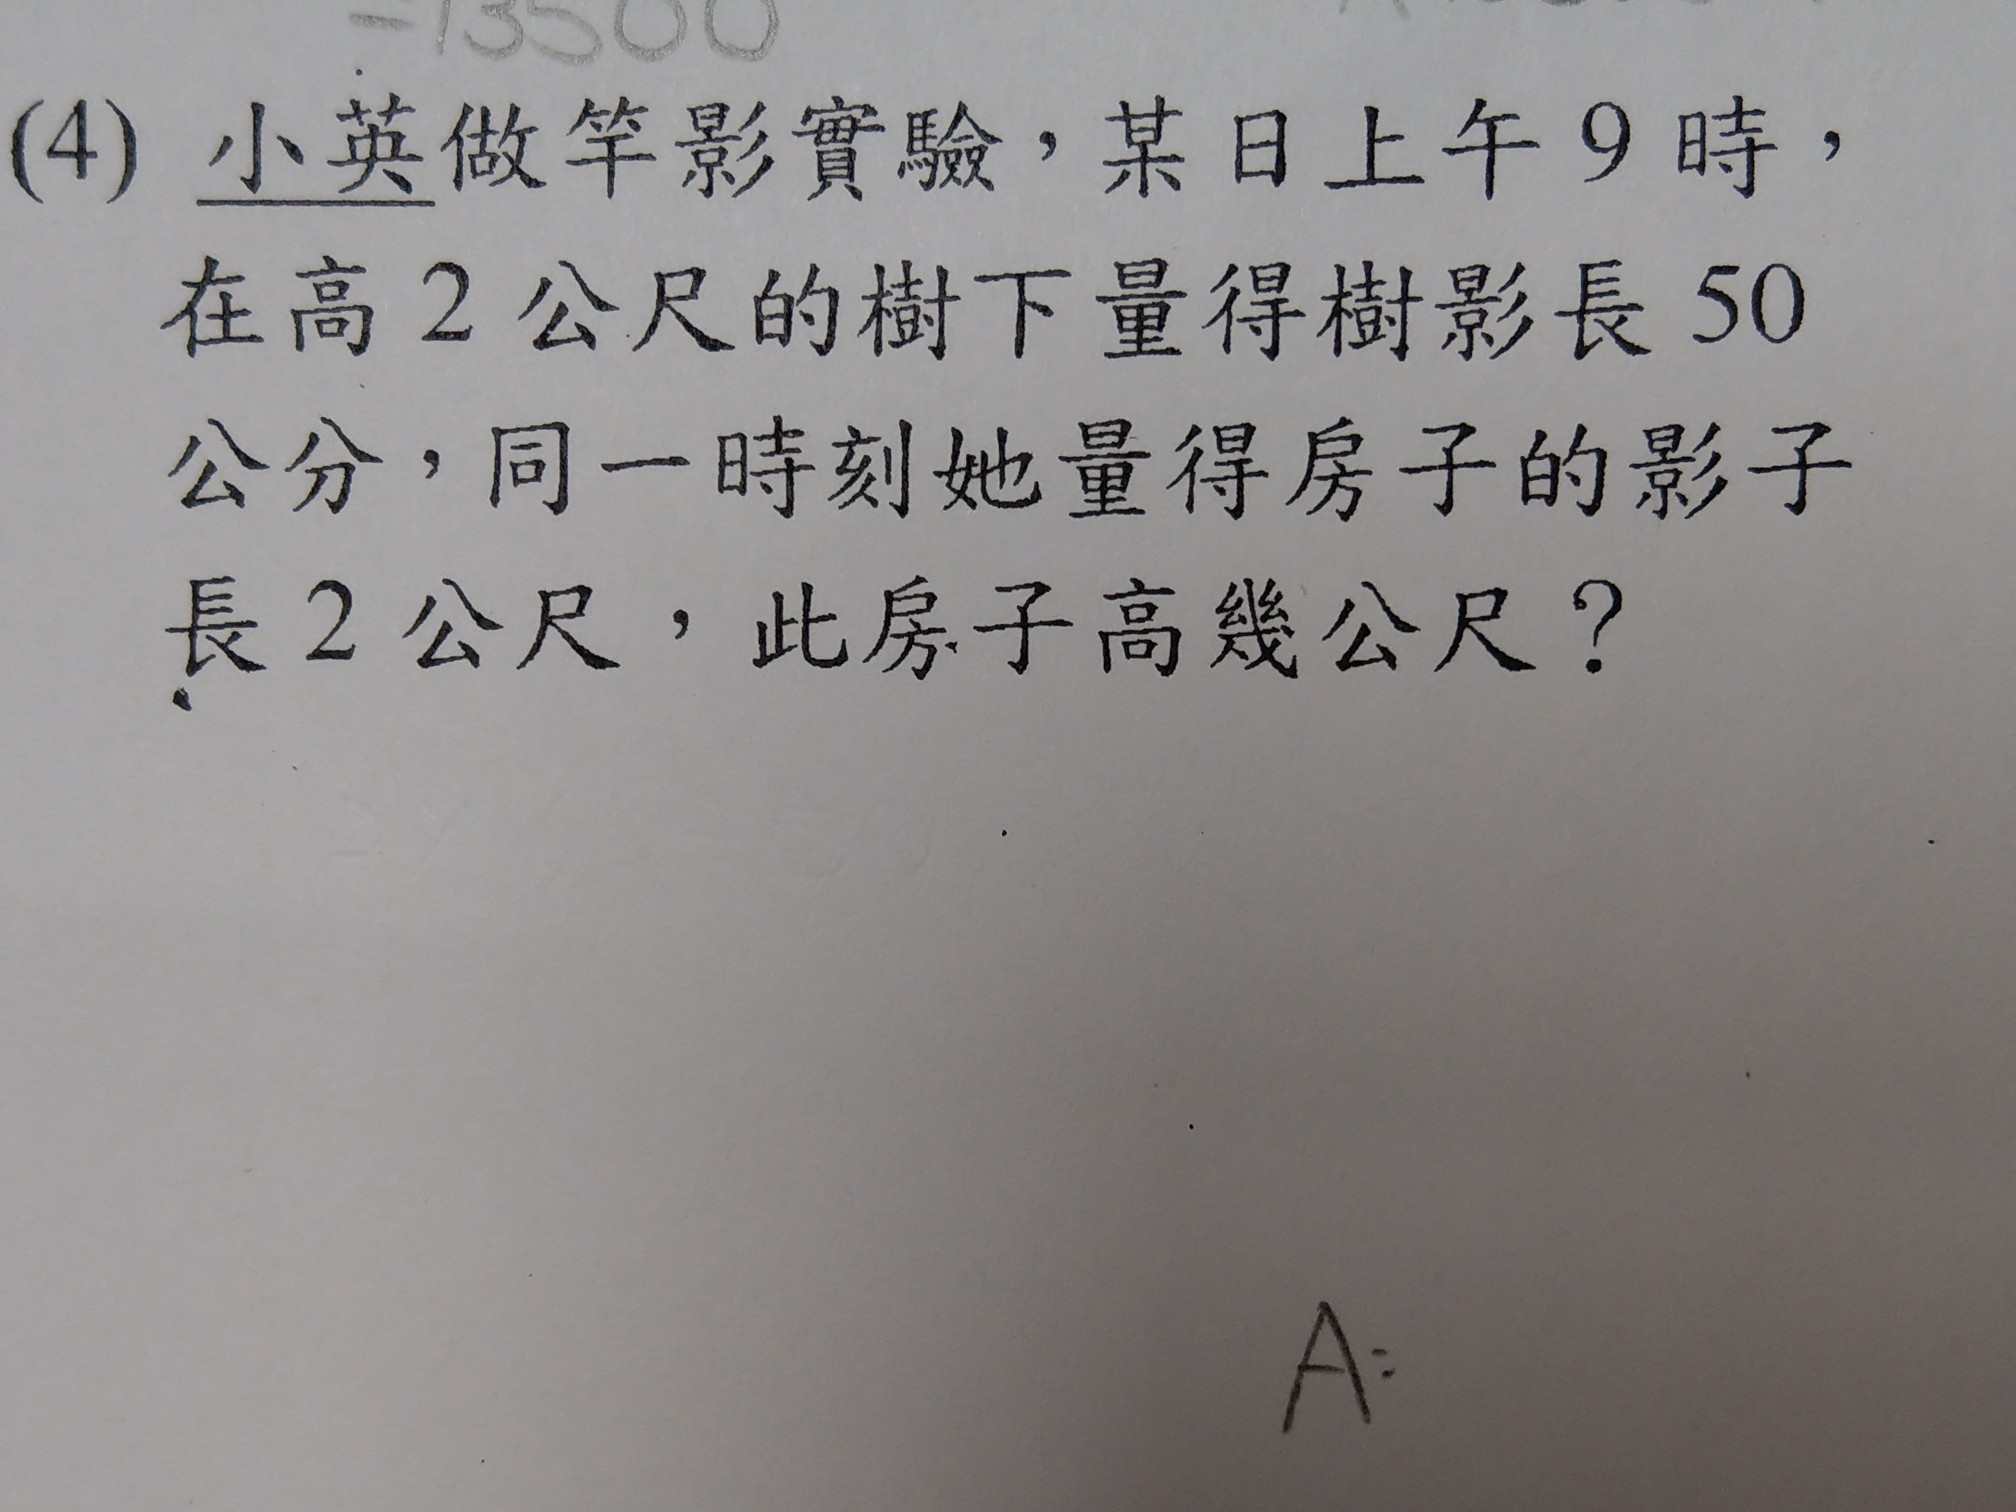 =13500
(4) 小英做竿影實驗，某日上午9時，
在高2公尺的樹下量得樹影長50
公分，同一時刻她量得房子的影子
長2公尺，此房子高幾公尺？
A: